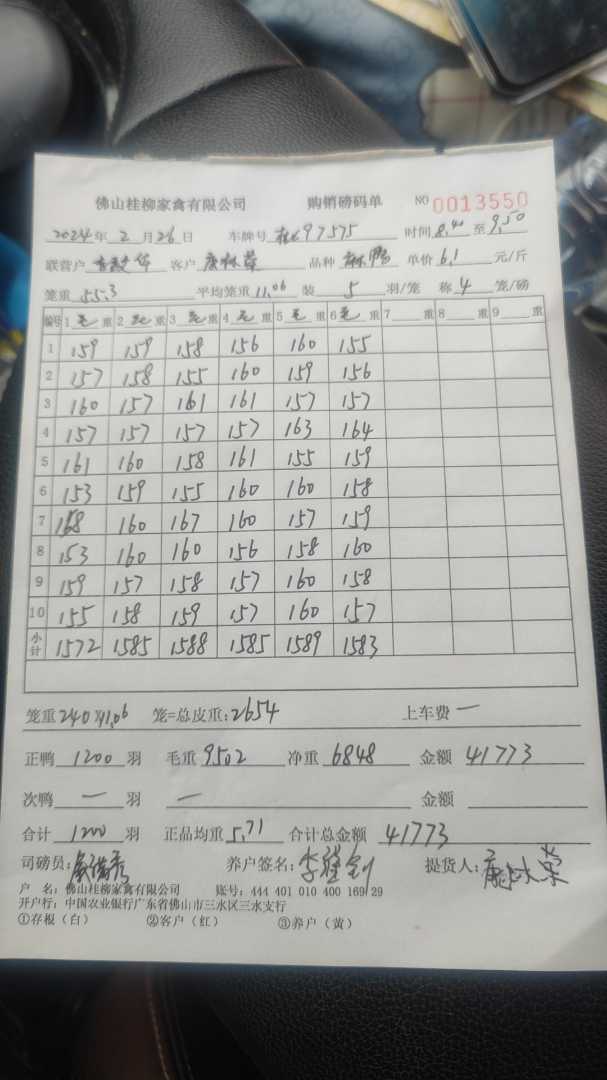 佛山桂柳家禽有限公司 购销磅码单 NO 0013550
2024年2月26日 车牌号 桂L97575 时间8.40至9.50
联营户 客户 康林荣 品种 麻鸭 单价6.1元/斤
笼重55.3 平均笼重11.06 装5羽/笼 称4笼/磅
编号 1毛重 2毛重 3毛重 4毛重 5毛重 6毛重 7重 8重 9重
1 159 159 158 156 160 155
2 157 158 155 160 159 156
3 160 157 161 161 157 157
4 157 157 157 157 163 164
5 161 160 158 161 155 159
6 153 159 155 160 160 158
7 158 160 167 160 157 159
8 153 160 160 156 158 160
9 159 157 158 157 160 158
10 155 158 159 157 160 157
小计 1572 1585 1588 1585 1589 1583
笼重240×11.06 笼=总皮重:2654 上车费 一
正鸭1200羽 毛重9502 净重6848 金额41773
次鸭一羽 一 金额
合计1200羽 正品均重5.71 合计总金额41773
司磅员: 养户签名: 提货人:康林荣
户 名:佛山桂柳家禽有限公司 账号:444 401 010 400 169 29
开户行:中国农业银行广东省佛山市三水区三水支行
①存根(白) ②客户(红) ③养户(黄)